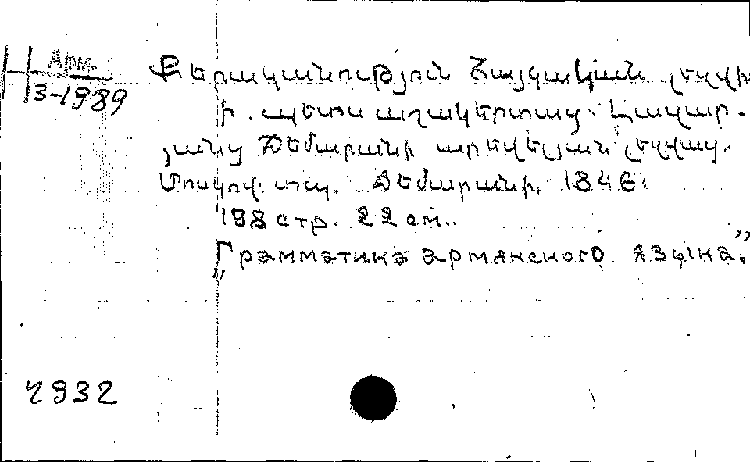 Арм.
3-1989
Քերականություն Հայկական լեզվի
ի. պետս աշակերտաց. Լազար-
յանց Ճեմարանի արևելյան լեզվաց.
Մոսկով. տպ. Ճեմարանի, 1846.
198 стр. 22 см.
„Грамматика армянского языка”.
7932